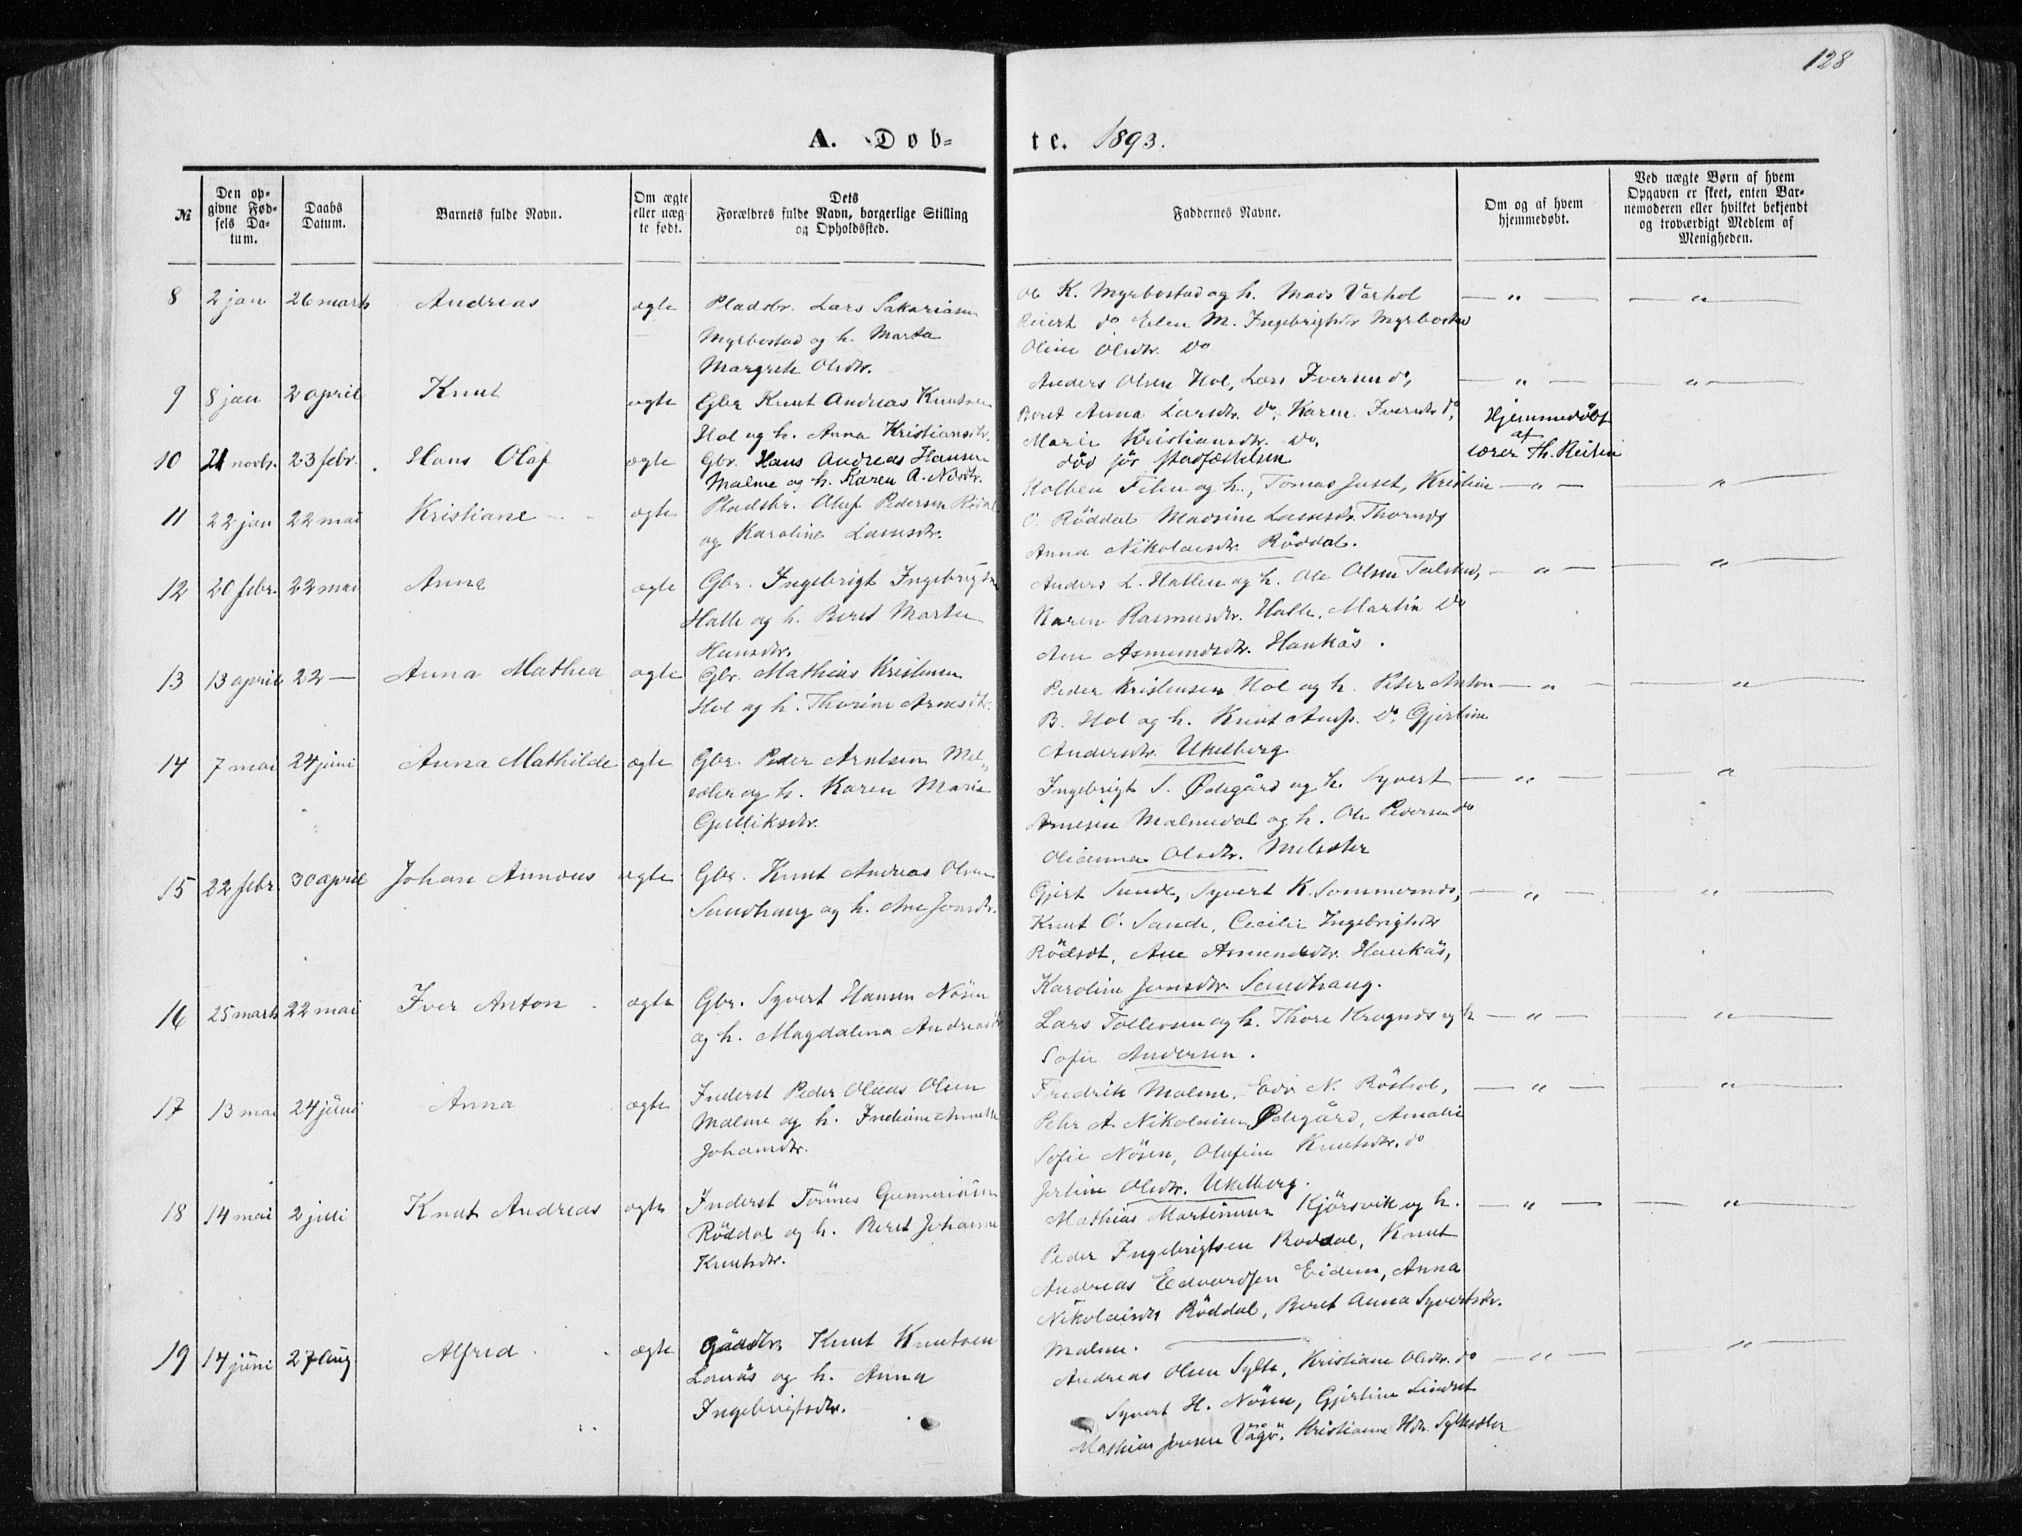 128
A. Døb-
te. 1893.
№
Den op-
givne Fød-
sels Da-
tum.
Daabs
Datum.
Barnets fulde Navn.
Om ægte
eller uæg-
te født.
Dets
Forældres fulde Navn, borgerlige Stilling
og Opholdssted.
Faddernes Navne.
Om og af hvem
hjemmedøbt.
Ved uægte Børn af hvem
Opgaven er skeet, enten Bar-
nemoderen eller hvilket bekjendt
og troværdigt Medlem af
Menigheden.
8 2 jan 26 marts Andreas ægte Pladsbr. Lars Sakariasen
Myrbostad og h. Marta
Margrete Olsdtr.
Ole K. Myrbostad og h. Mads Varhol
do Elen M. Ingebrigtsdtr Myrbostad
Oline Olsdtr. Do
9 8 jan 2 april Knut ægte Gbr Knut Andreas Knutsen
Hol og h. Anna Kristiansdtr.
Anders Olsen Hol, Lars Iversen do,
Beret Anna Larsdtr. Do, Karen Iversdtr do,
Marie Kristiansdtr. Do,
10 21 novbr. 23 febr. Hans Olaf ægte Gbr. Hans Andreas Hansen
Malme og h. Karen A. Nilsdtr.
død før stadfæstelsen
Hjemmedøbt
af
lærer Th. Reiten
11 22 jan 22 mai Kristiane ægte Pladsbr. Oluf Pedersen Röddal
og Karoline Larsdtr.
Kolben og h., Tomas Juset, Kristine
O. Röddal Madsine Larsdtr. Thornes
Anna Nikolaisdtr. Röddal.
12 20 febr. 22 mai Anna ægte Gbr. Ingebrigt Ingebrigtsen
Halle og h. Beret Marta
Hansdtr.
Anders L. Hallen og h. Ole Olsen Talstad,
Karen Rasmusdtr. Halle. Martin Do
Ane Asmundsdtr. Haukås.
13 13 april 22 — Anna Mathea ægte Gbr. Mathias Kristensen
Hol og h. Thorine Arnesdtr.
Peder Kristensen Hol og h. Peter Anton
B. Hol og h. Knut Do, Gjertine
Andersdtr. Ukelberg
14 7 mai 24 juni Anna Mathilde ægte Gbr. Peder Arntsen Mel-
sæter og h. Karen Marie
Gulliksdtr.
Ingebrigt S. Ødegård og h. Syvert
Arnesen Malmedal og h. Ole Pedersen do
Olianna Olsdtr. Melsæter
15 22 febr 30 april Johan Annæus ægte Gbr. Knut Andreas Olsen
Sandhaug og h. Ane Jonsdtr.
Gjert Sunde, Syvert K. Sommernes,
Knut O. Sande, Cecilie Ingebrigtsdtr
Rödset, Ane Asmundsdtr. Haukås,
Karoline Jonsdtr. Sandhaug.
16 25 marts 22 mai Iver Anton ægte Gbr. Syvert Hansen Nösen
og h. Magdalena Andreasdtr
Lars Tollevsen og h. Thore Krognes og h
Sofie Andersen.
17 13 mai 24 juni Anna ægte Inderst Peder Olaus Olsen
Malme og h. Indiane Annette
Johansdtr.
Fredrik Malme, Edv N. Röshol,
Pehr A. Nikolaisen Ødegård, Amalie
Sofie Nösen, Olufine Knutsdtr. do
Jertine Olsdtr. Ukelberg.
18 14 mai 2 juli Knut Andreas ægte Inderst Tormes Gunneriusen
Röddal og h. Beret Johanne
Knutsdtr.
Mathias Martinusen Kjörsvik og h.
Peder Ingebrigtsen Roddal, Knut
Andreas Edvardsen Eidem, Anna
Nikolaisdtr Röddal, Beret Anna Syvertsdtr.
Malme.
19 14 juni 27 Aug Alfred ægte Gårdbr. Knut Knutsen
Lanås og h. Anna
Ingebrigtsdtr.
Andreas Olsen Sylte, Kristiane Olsdtr. do
Syvert H. Nösen, Gjertine Lindset
Mathias Jensen Vågö, Kristianne Hdtr. Syltesæter